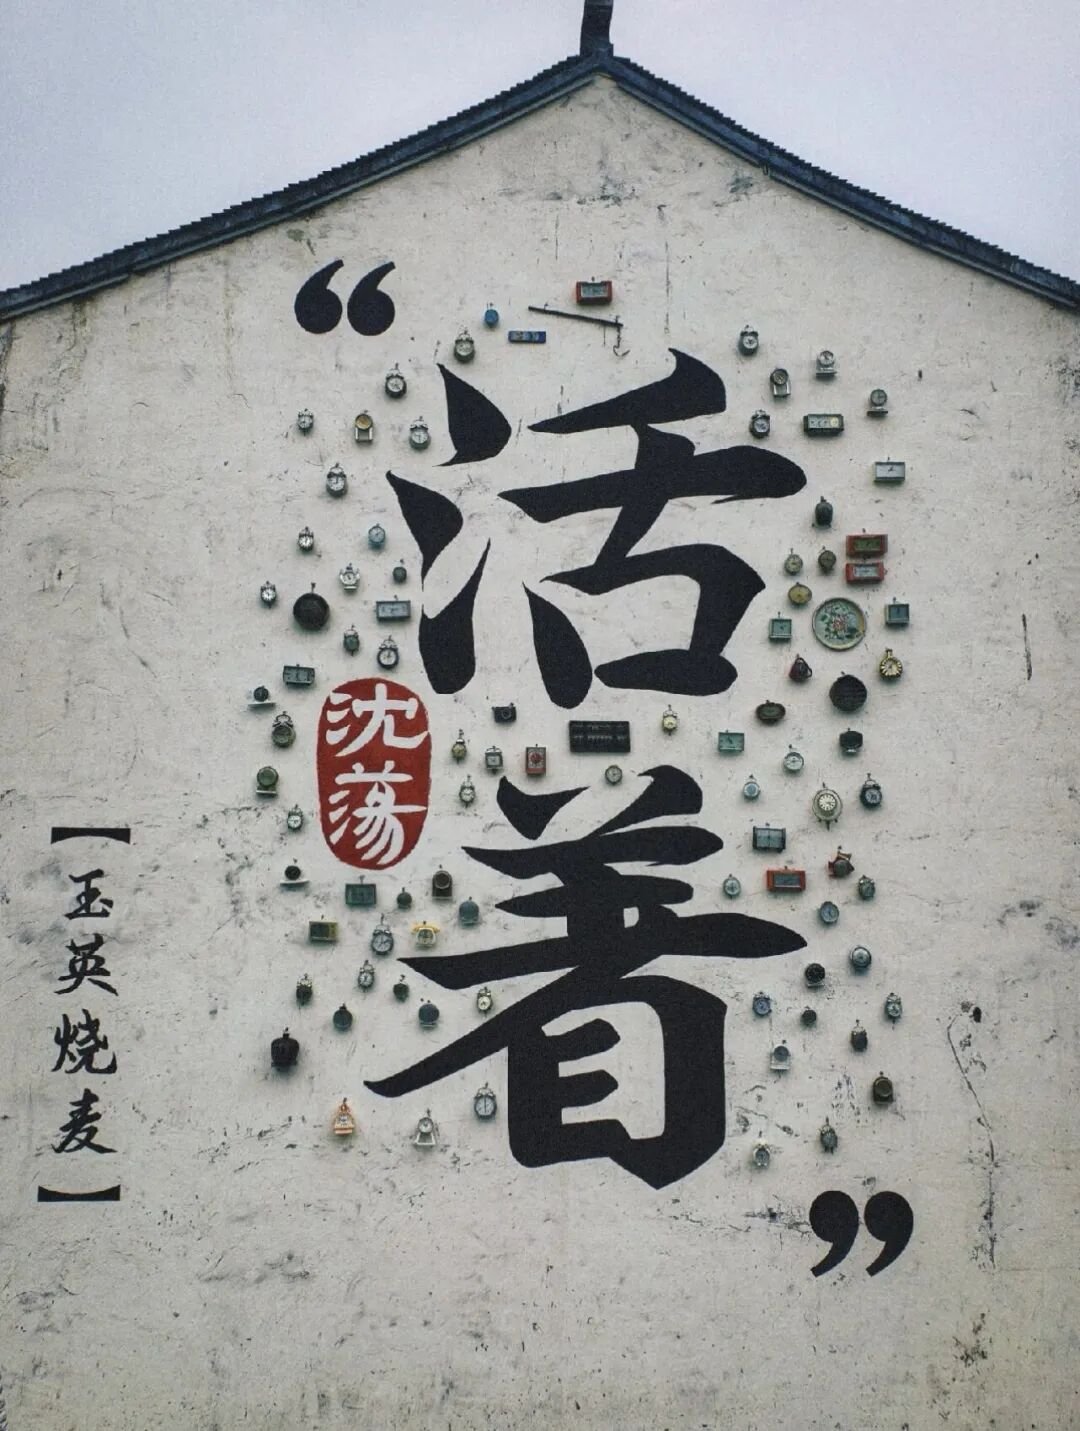 “活着”
沈荡
【玉英烧麦】